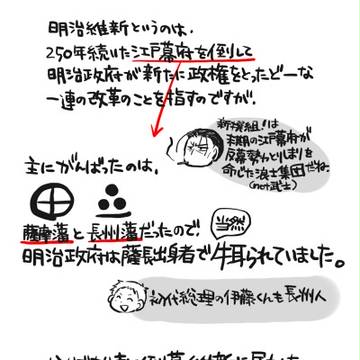 明治維新というのは、
250年続いた江戸幕府を倒して
明治政府が新たに政権をとったどーな
一連の改革のことを指すのですが、
新撰組!は
末期の江戸幕府が
反幕勢力とりしまりを
命じた浪士集団だね
(not武士)
主にがんばったのは、
薩摩藩と長州藩だったので
当然
明治政府は薩長出身者で牛耳られていました。
初代総理の伊藤くんも長州人